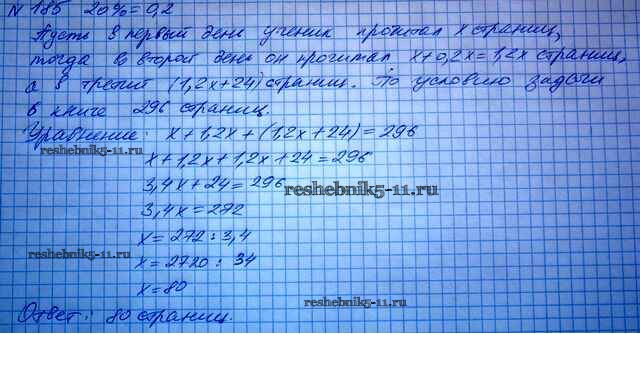 N 185 20% = 0,2
Пусть в первый день ученик прочитал x страниц,
тогда во второй день он прочитал x+0,2x=1,2x страниц,
а в третий (1,2x+24) страниц. По условию задачи
в книге 296 страниц.
Уравнение: x+1,2x+(1,2x+24)=296
reshebnik5-11.ru
x+1,2x+1,2x+24=296
3,4x+24=296
reshebnik5-11.ru
3,4x=272
x=272:3,4
reshebnik5-11.ru
x=2720:34
x=80
reshebnik5-11.ru
Ответ: 80 страниц.